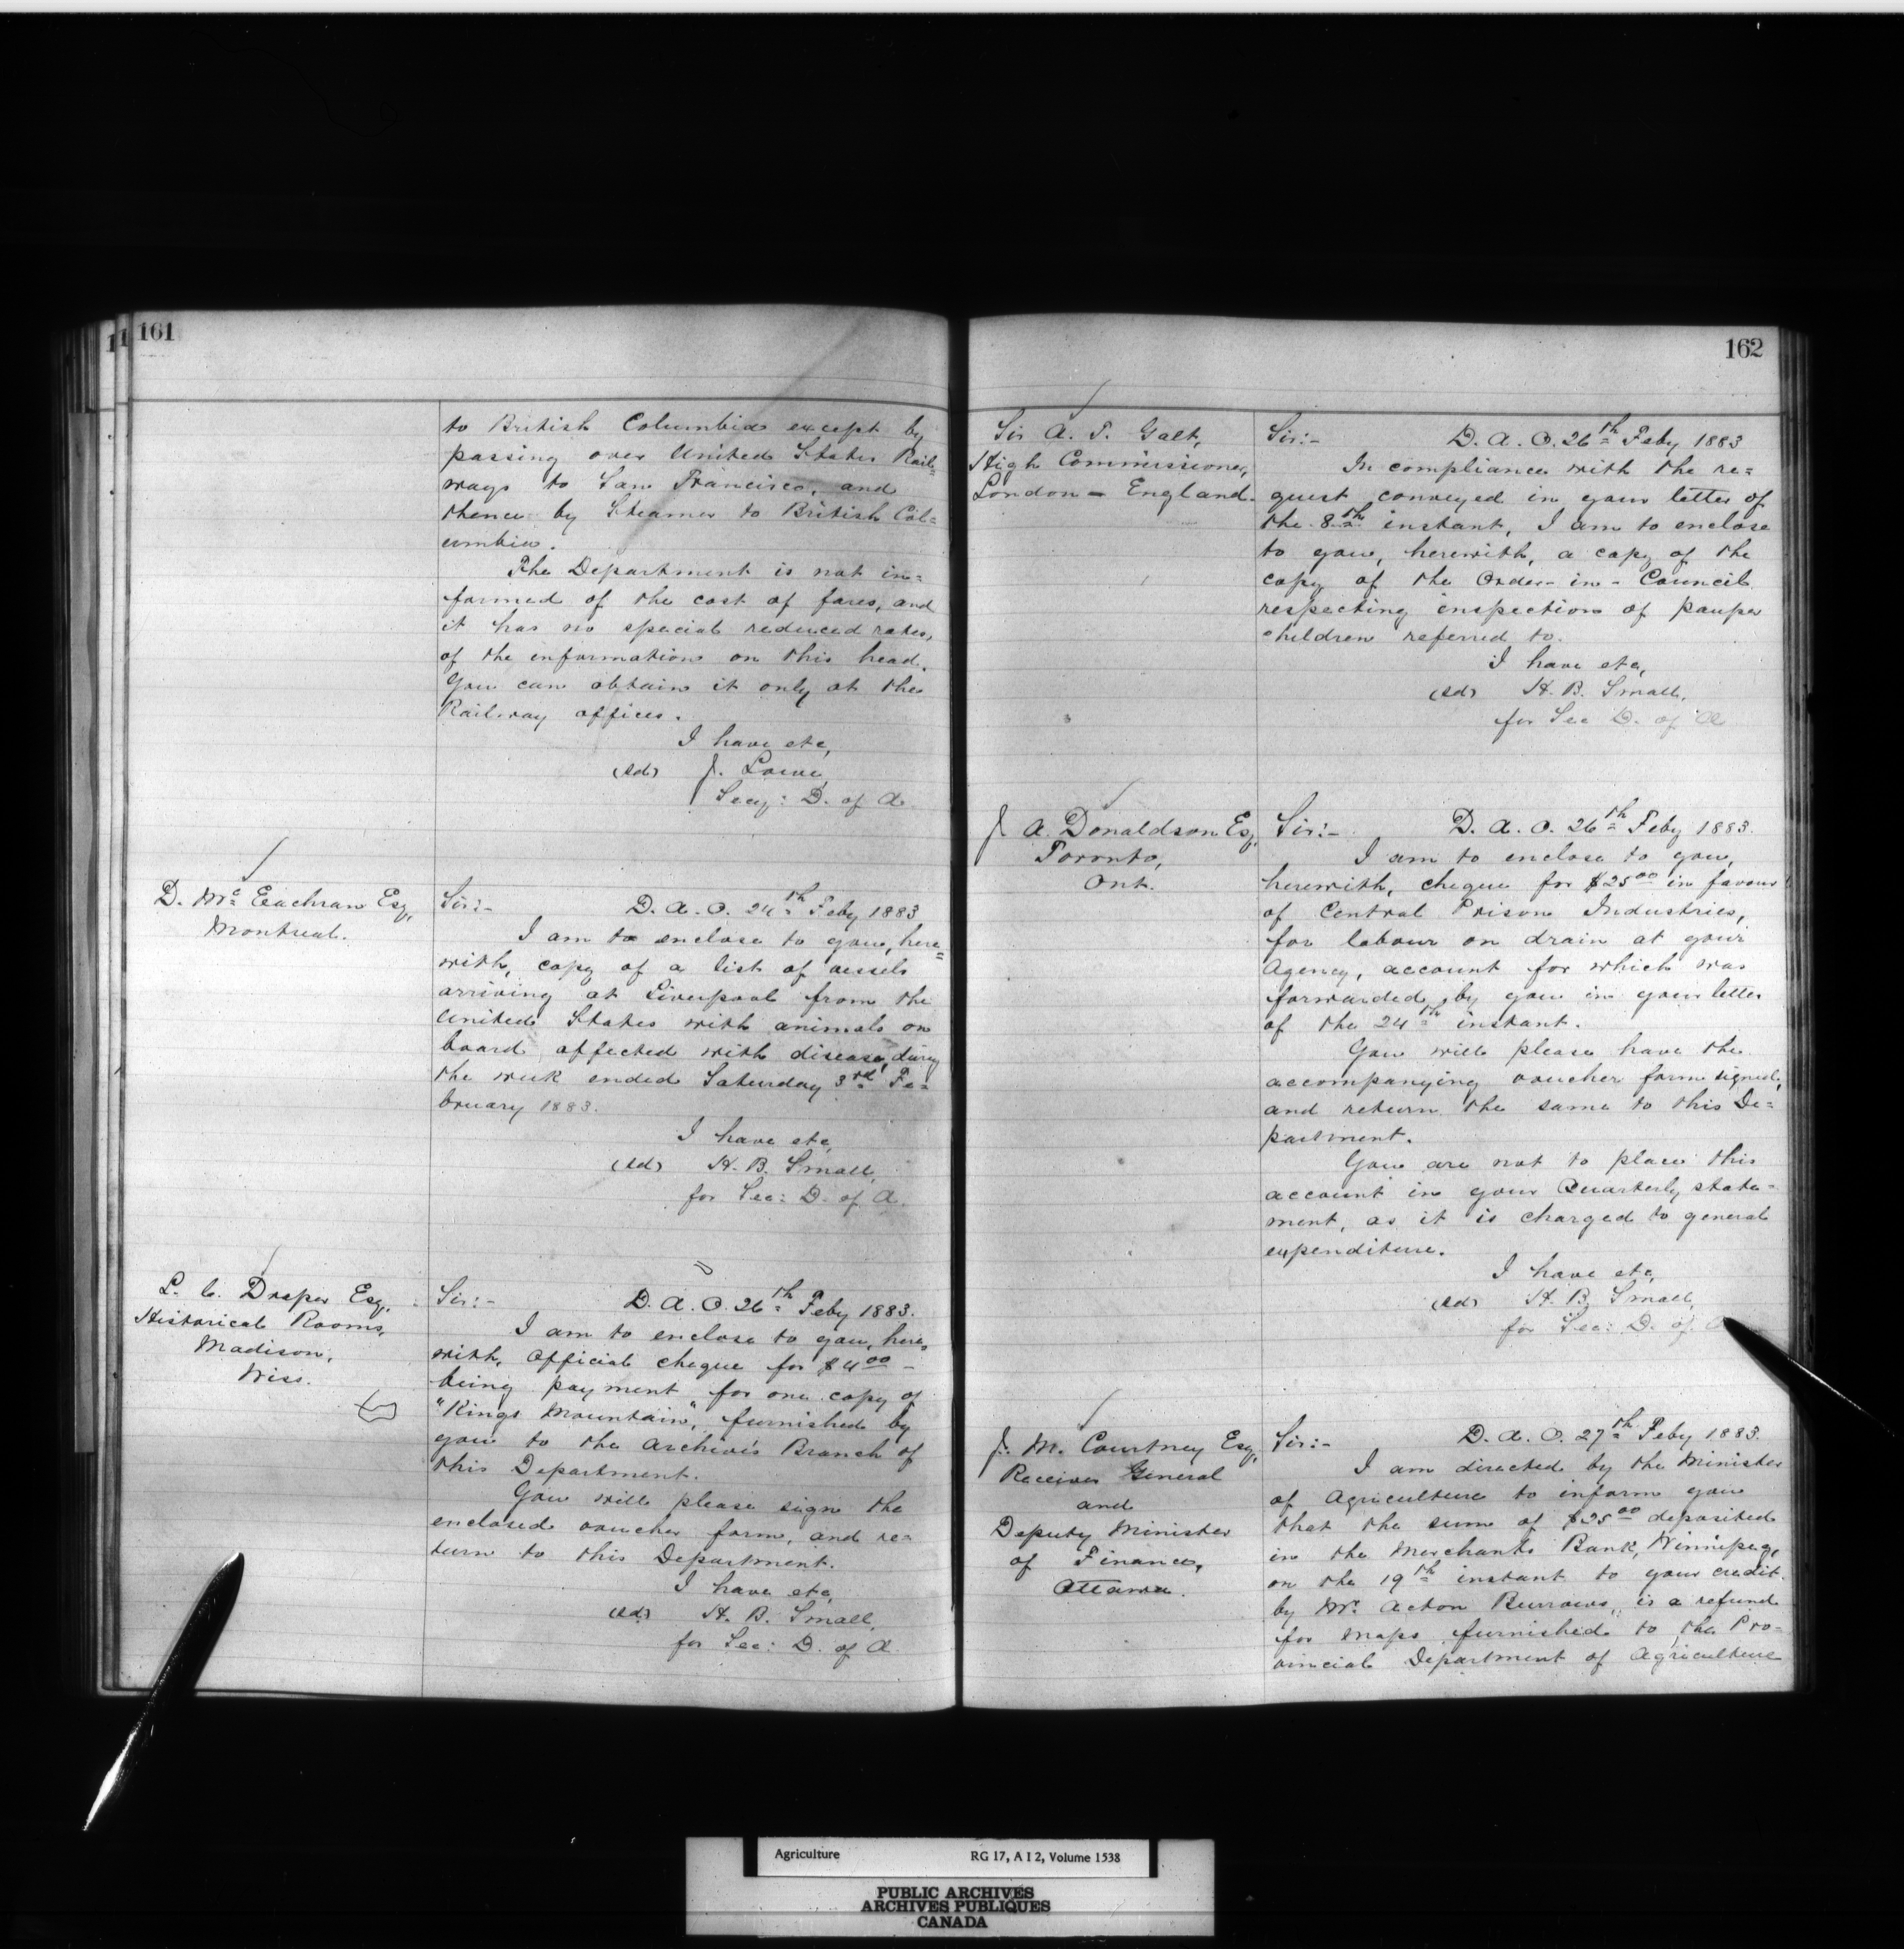 161
to British Columbia except by
passing over United States Rail=
ways to San Francisco, and
thence by Steamer to British Col=
umbia.
The Department is not in=
formed of the cost of fares, and
it has no special reduced rates,
of the information on this head.
You can obtain it only at the
Railway offices.
I have etc,
(sd) J. Lowe,
Secy: D. of A.
D. Mc Eachran Esq,
Montreal.
Sir:- D. A. O. 24th Feby 1883
I am to enclose to you, here=
with, copy of a list of vessels
arriving at Liverpool from the
United States with animals on
board affected with disease, during
the week ended Saturday 3rd Fe=
bruary 1883.
I have etc,
(sd) H. B. Small,
for Sec: D. of A.
L. C. Draper Esq,
Historical Rooms,
Madison,
Wiss.
Sir:- D. A. O. 26th Feby 1883.
I am to enclose to you, here=
with, Official cheque for $4.00 -
being payment for one copy of
"Kings Mountain", furnished by
you to the Archives Branch of
this Department.
You will please sign the
enclosed voucher form, and re=
turn to this Department.
I have etc,
(sd) H. B. Small,
for Sec: D. of A
162
Sir A. T. Galt,
High Commissioner,
London - England.
Sir:- D. A. O. 26th Feby 1883
In compliance with the re=
quest conveyed in your letter of
the 8th instant, I am to enclose
to you, herewith, a copy of the
copy of the Order-in-Council
respecting inspection of pauper
children referred to.
I have etc,
(sd) H. B. Small,
for Sec D. of A
J. A. Donaldson Esq,
Toronto,
Ont.
Sir:- D. A. O. 26th Feby 1883.
I am to enclose to you,
herewith, cheque for $25.00 in favour
of Central Prison Industries,
for labour on drain at your
Agency, account for which was
forwarded by you in your letter
of the 24th instant.
You will please have the
accompanying voucher form signed,
and return the same to this De=
partment.
You are not to place this
account in your Quarterly state=
ment, as it is charged to general
expenditure.
I have etc,
(sd) H. B. Small,
for Sec: D. of A
J. M. Courtney Esq,
Receiver General
and
Deputy Minister
of Finance,
Ottawa.
Sir:- D. A. O. 27th Feby 1883.
I am directed by the Minister
of Agriculture to inform you
that the sum of $25.00 deposited
in the Merchants Bank, Winnipeg,
on the 19th instant to your credit
by Mr. Acton Burrows, is a refund
for maps furnished to the Pro=
vincial Department of Agriculture
Agriculture RG 17, A I 2, Volume 1538
PUBLIC ARCHIVES
ARCHIVES PUBLIQUES
CANADA